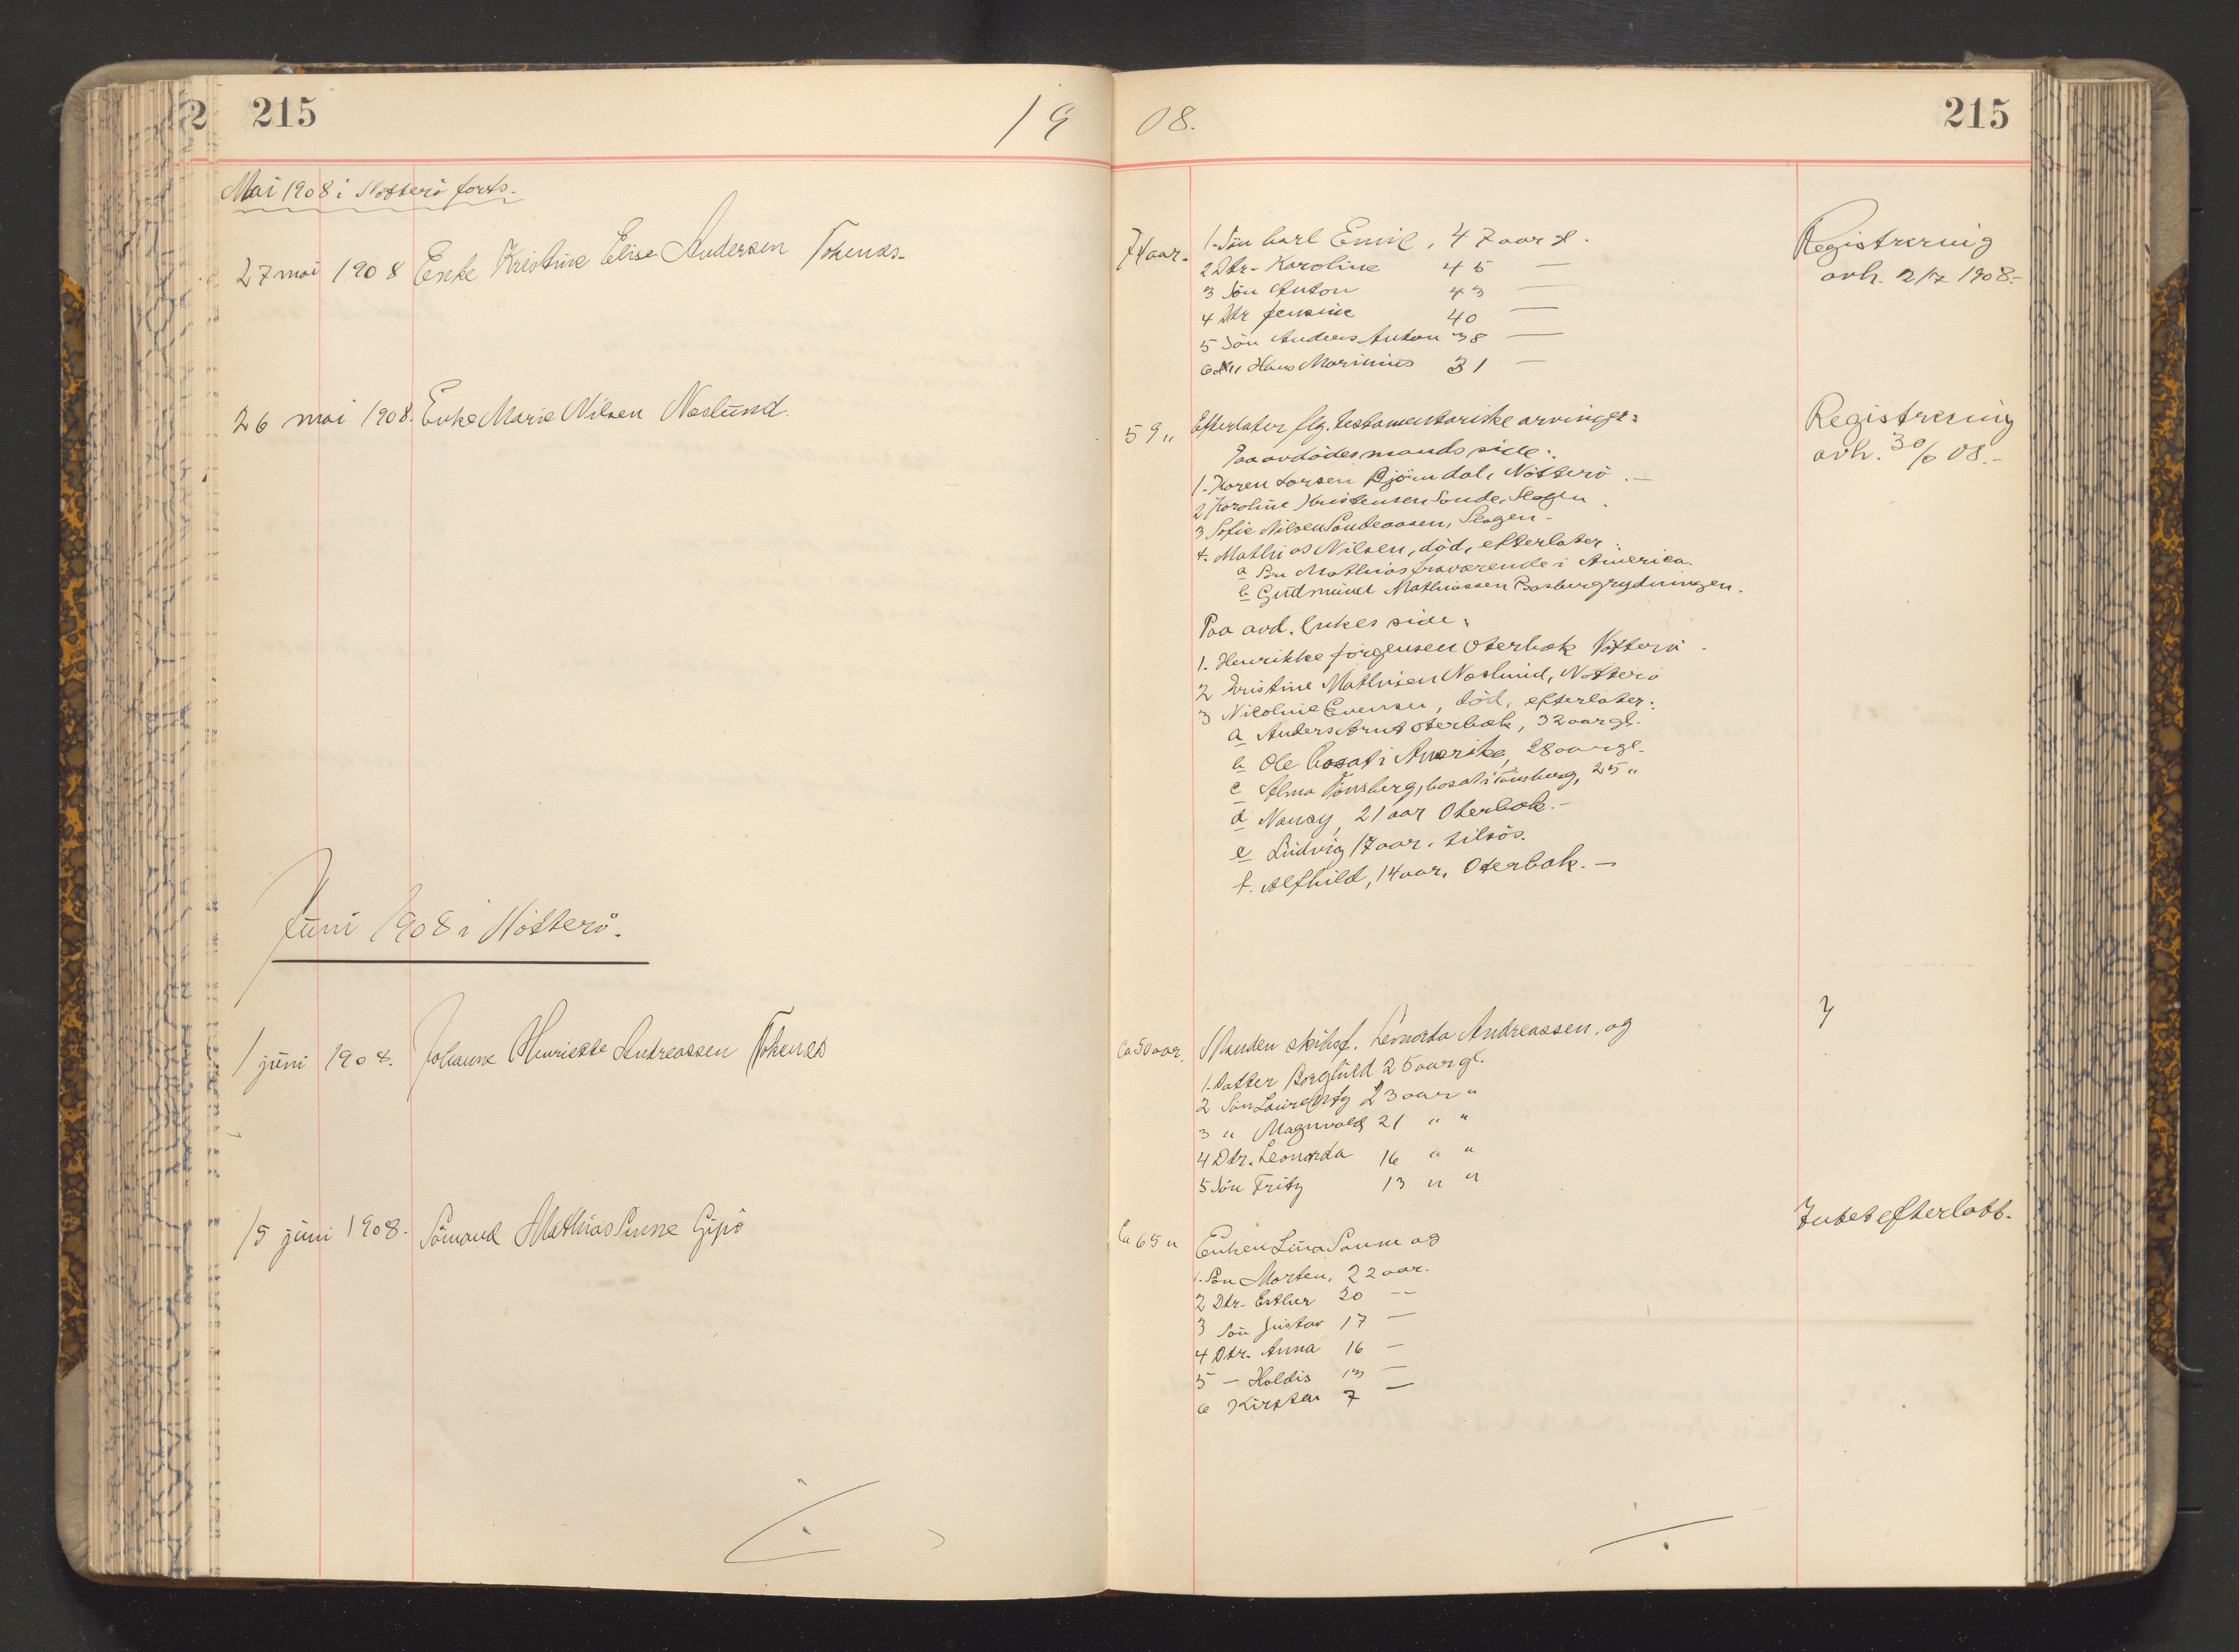 215
19
08.
215
Mai 1908 i Nötterö forts.
27 mai 1908 Enke Kristine Elise Andersen Tokenes.
74 aar.
1. Sön Carl Emil, 47 aar gl.
2 Dtr. Karoline 45 —
3 Sön Anton 43 —
4 Dtr Jensine 40 —
5 Sön Anders Anton 38 —
6 Hans Marinius 31 —
Registrering
avh. 2/7 1908.-
26 mai 1908. Enke Marie Nilsen Neslund.
59 "
Efterlater flg. testamentariske arvinger:
Paa avdödes mands side:
1. Karen Larsen Bjørndal, Nötterö.—
2 Karoline Kristensen Sande, Slagen.
3 Sofie Nilsen Sandeaasen, Slagen-
4. Mathias Nilsen, död, efterlater:
a Sön Mathias fraværende i America.
b Gudmund Mathiassen Basbergrydningen.
Paa avd. Enkes side:
1. Henrikke Jörgensen Oterbæk Nötterö.
2 Kristine Mathisen Neslund, Nötterö
3 Nicoline Evensen, död, efterlater:
a Anders Arnt Oterbæk, 32 aar gl.
b Ole bosat i Amerika, 28 aar gl.
c Alma Tönsberg, bosat i Tönsberg, 25 "
d Nancy, 21 aar Oterbæk.—
e Ludvig 17 aar, tilsös.
f. Alfhild, 14 aar, Oterbæk.—
Registrering
avh. 30/6 08.-
Juni 1908 i Nötterö.
1 juni 1908. Johanne Henriette Andreassen Tokenes
Ca 50 aar.
Manden skibsf. Leonorda Andreassen. og
1. Datter Borghild 25 aar gl.
2 Sön Laurentz 23 aar "
3 " Magnvald 21 " "
4 Dtr. Leonorda 16 " "
5 Sön Fritz 13 " "
15 juni 1908. Sömand Mathias Sunne Gipö
Ca 65 "
Enken Lina Sunne og
1. Sön Morten, 22 aar.
2 Dtr. Esther 20 —
3 Sön Gustav 17 —
4 Dtr. Anna 16 —
5 — Haldis 13 —
6 Kirsten 7 —
Intet efterlatt.